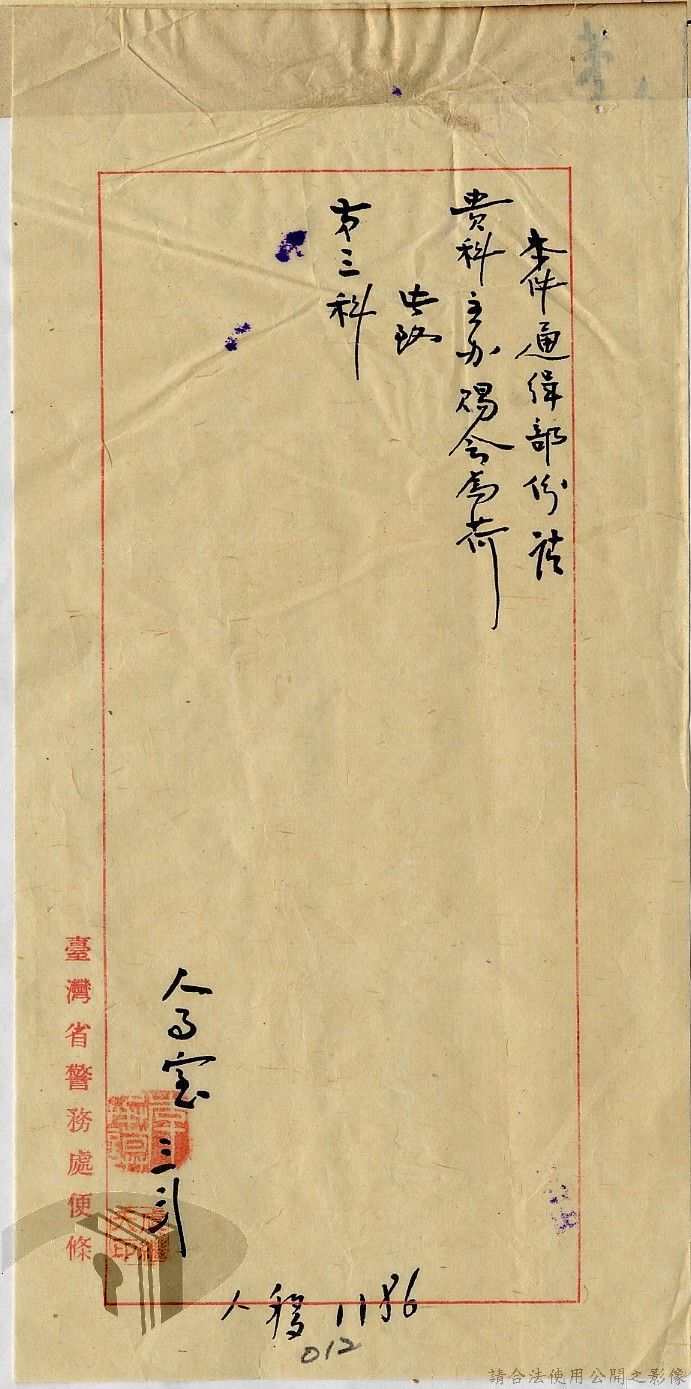 本件通緝部份請
貴科主办賜會為荷
此致
第三科
人事室
臺灣省警務處便條
人移1186
012
請合法使用公開之影像